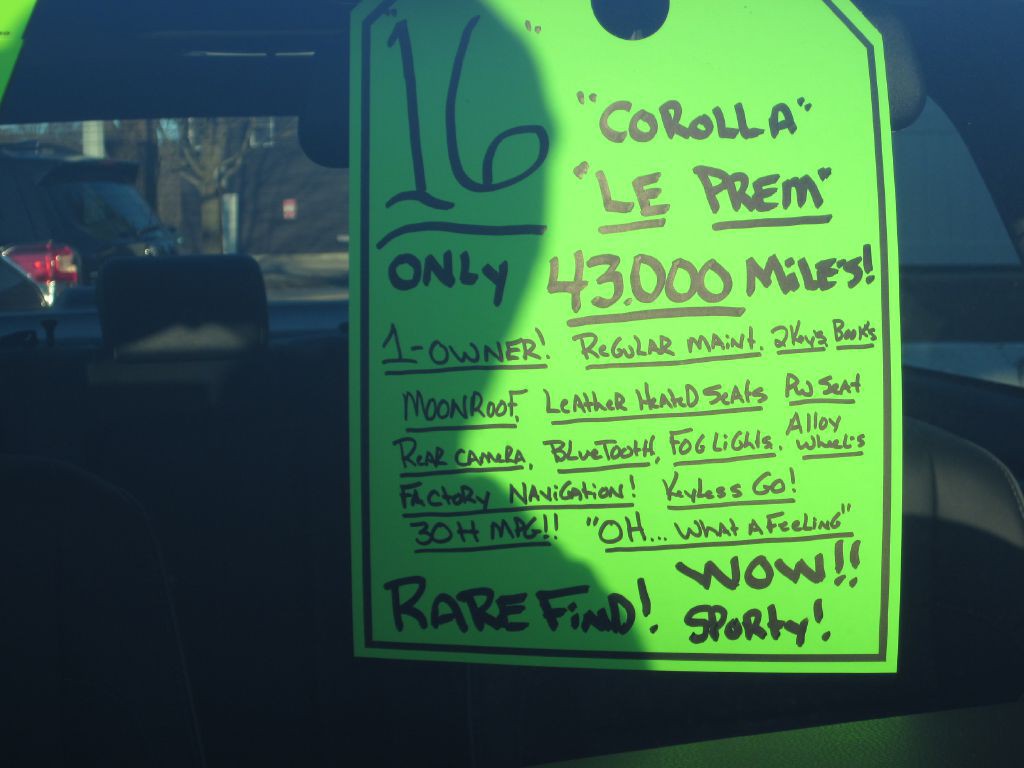 "16"
"COROLLA"
"LE PREM"
ONLY 43.000 MILE'S!
1-OWNER! REGULAR MAINT. 2 KEY'S BOOK'S
MOONROOF, LEATHER HEATED SEATS PW SEAT
REAR CAMERA, BLUETOOTH, FOG LIGHTS. ALLOY WHEEL'S
FACTORY NAVIGATION! KEYLESS GO!
30+ MPG!! "OH... WHAT A FEELING"
RARE FIND! WOW!!
SPORTY!